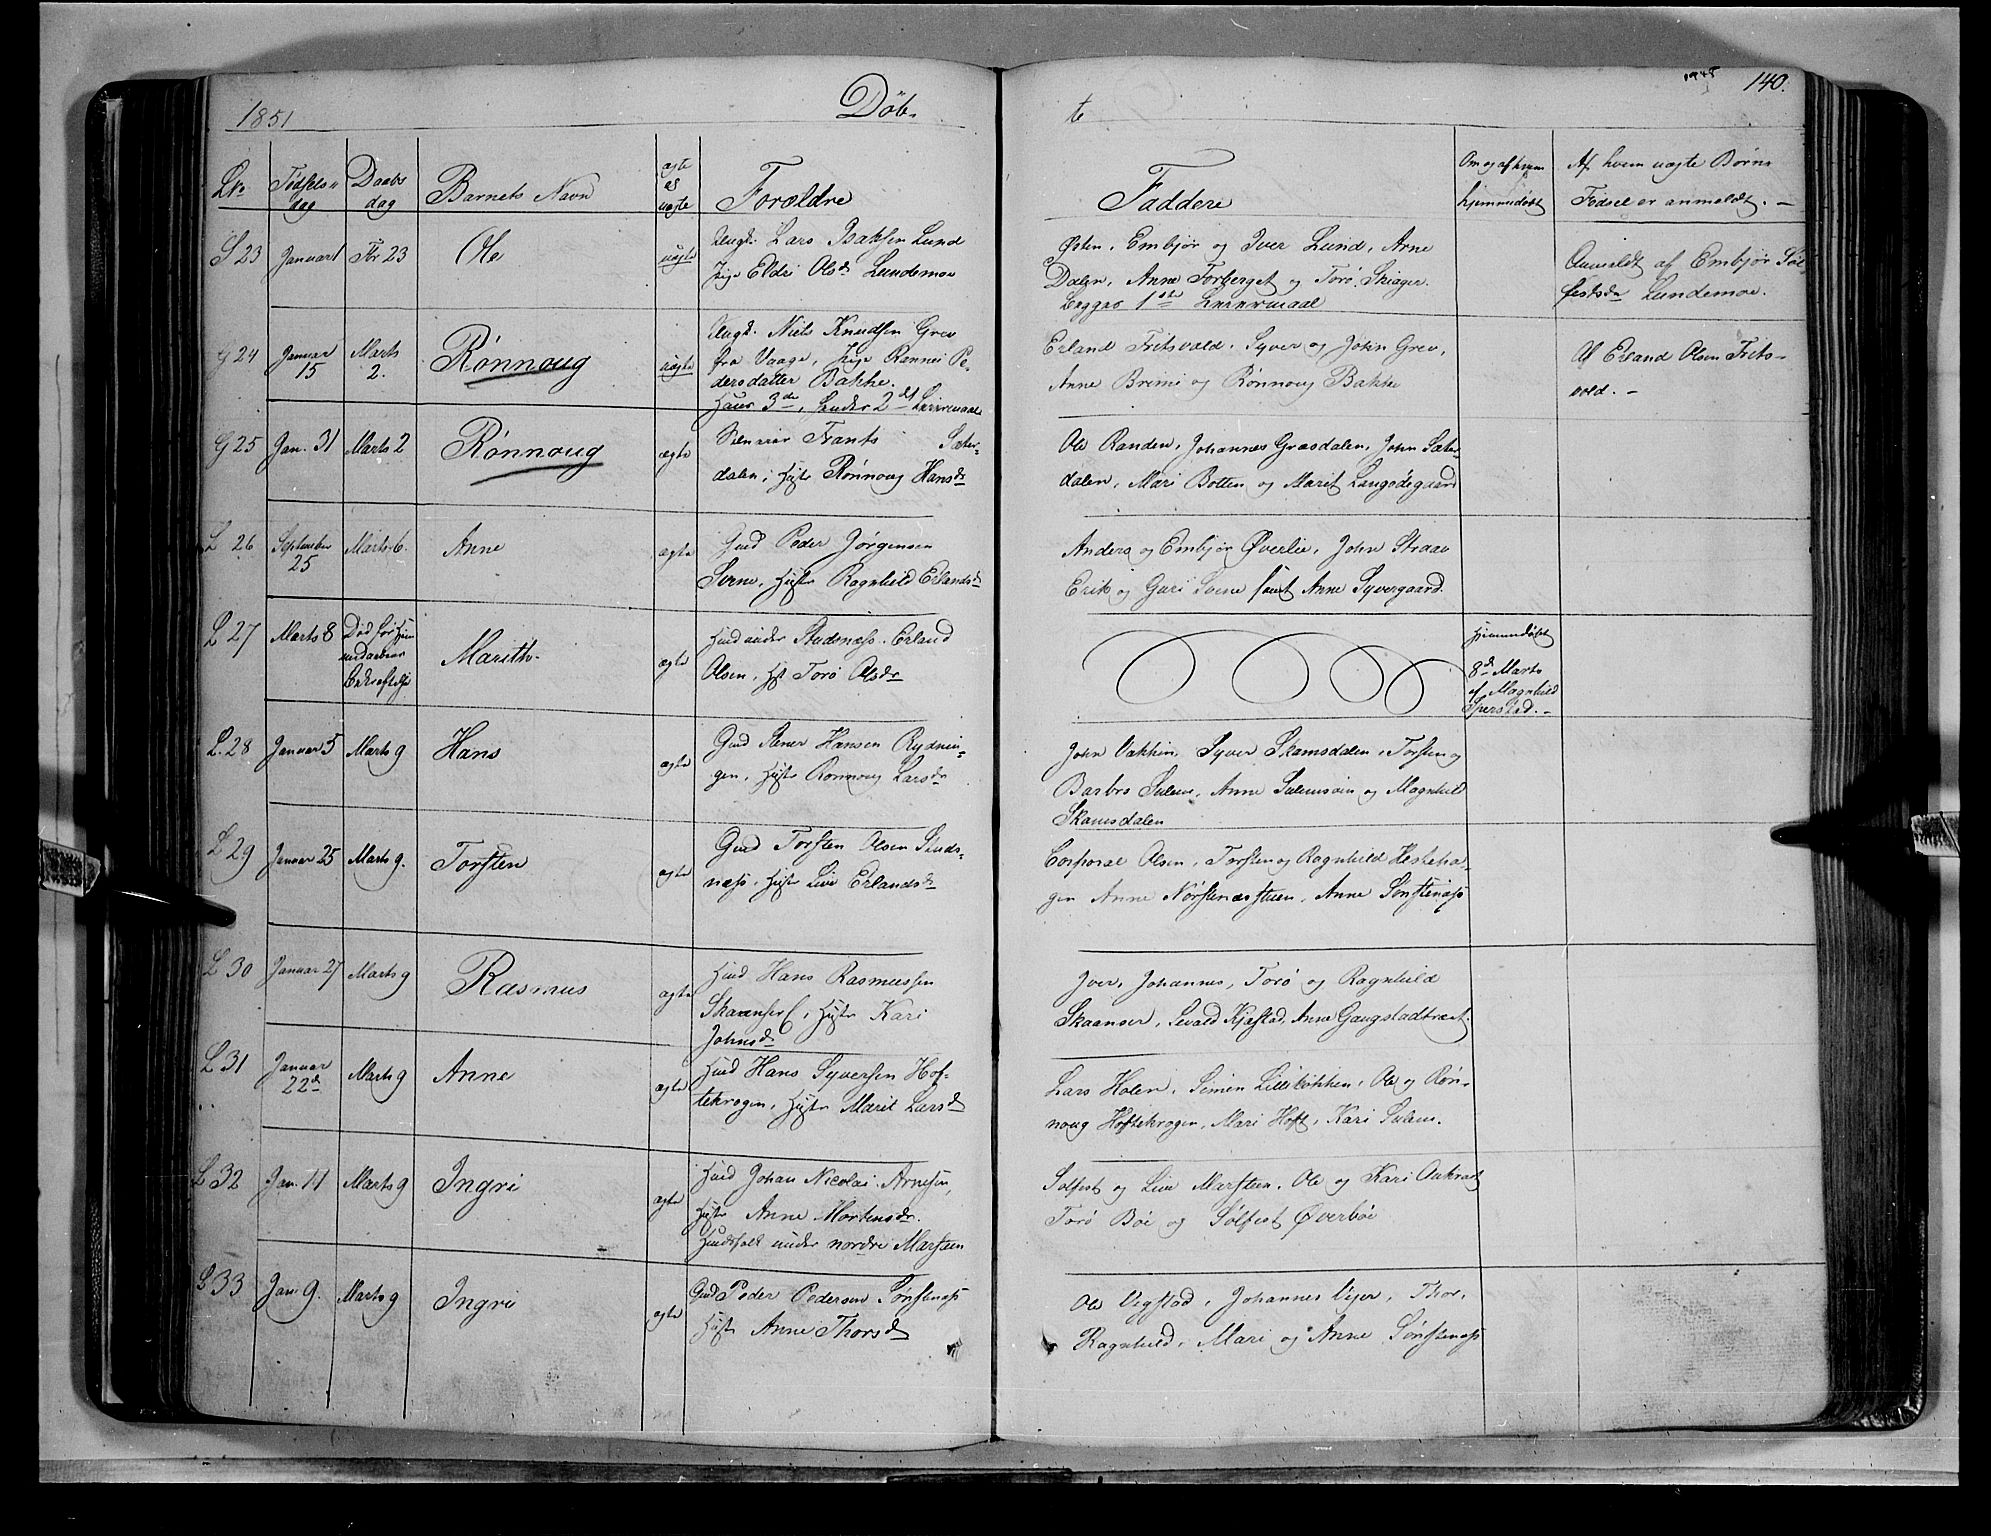 1851 Døb-
te 140.
No Fødsels- dag Daabs dag Barnets Navn ægte eller uægte Forældre
Faddere Om og af hvem hjemmedøbt Af hvem uægte Børns Fødsel er anmeldt. —
S 23 Januar 1 Fbr 23 Ole uægte Ungk. Lars Isaksen Lund
Pige Eldri Olsdr Lundemoe
Østen, Embjør og Iver Lund, Arne
Dalen, Anne Forberget og Torø Skiager.
Begges 1ste Leiermaal
Anmeldt af Embjør Sølfestsdr Lundemoe.
G 24 Januar 15 Marts 2. Rønnoug uægte Ungk. Niels Knudsen Grev
fra Vaage, Pige Rannei Pe-
dersdatter Bakke.
Hans 3de, hendes 2det Leiermaal
Erland Fritsvold, Syver og John Grev,
Anne Bremi og Rønnoug Bakke
Af Erland Olsen Frits-
vold. —
G 25 Jan. 31 Marts 2 Rønnoug ægte Frants Sæter-
dalen, Hustr Rønnoug Hansdr
Ole Randen, Johannes Græsdalen, John Sæter-
dalen, Mari Botten og Marit Langødegaard
L 26 September 25 Marts 6. Anne ægte Gmd Peder Jørgensen
Svene, Hustr Ragnhild Erlandsdr
Anders og Embjør Øverlie, John Straae
Erik og Guri Svene samt Anne Syvergaard.
L 27 Marts 8 Død før Hjemmedaabens Bekræftelse Marithe ægte Huusd under Studsnæss. Erland
Olsen, Hst Torø Olsdr
Hjemmedøbt
8de Marts
af Magnhild
Sperstad. —
L. 28 Januar 5 Marts 9 Hans ægte Gmd Stener Hansen Rydnin-
gen, Hustr Rønnoug Larsdr
John Bakkin, Syver Skamsdalen, Torsten og
Barbro Sulem, Anne Sulemsøien og Magnhild
Skamsdalen
L 29 Januar 25 Marts 9. Torsten ægte Gmd Torsten Olsen Studs-
næss, Hustr Live Erlandsdr
Corporal Olsen, Torsten og Ragnhild Hesteha-
gen Anne Nørstenæsstuen, Anne Sønstenæss
L 30 Januar 27 Marts 9 Rasmus ægte Huusd Hans Rasmussen
Skaanser, Hustr Kari
Johnsdr
Iver, Johannes, Torø og Ragnhild
Skaanser, Sevald Kjæstad, Anne Gaugstadtræet.
L 31 Januar 22de Marts 9 Anne ægte Huusd Hans Syversen Hof-
tekrogen, Hustr Marit Larsdr
Lars Holen, Simen Lillebakken, Ole og Røn-
noug Hoftekrogen, Mari Hoft, Kari Sulem.
L 32 Jan. 11 Marts 9 Ingri ægte Huusd Johan Nicolai Arnesen,
Hustr Anne Mortensdr.
Huusfolk under nordre Marsteen
Solfest og Live Marsteen, Ole og Kari Aukrust
Torø Bøe og Sølfest Øverbøe
L 33 Jan. 9. Marts 9 Ingri ægte Gmd Peder Pedersen Sønstenæss
Hustr Anne Thorsdr
Ole Vigstad, Johannes Viger, Thor,
Ragnhild, Mari og Anne Sønstenæss